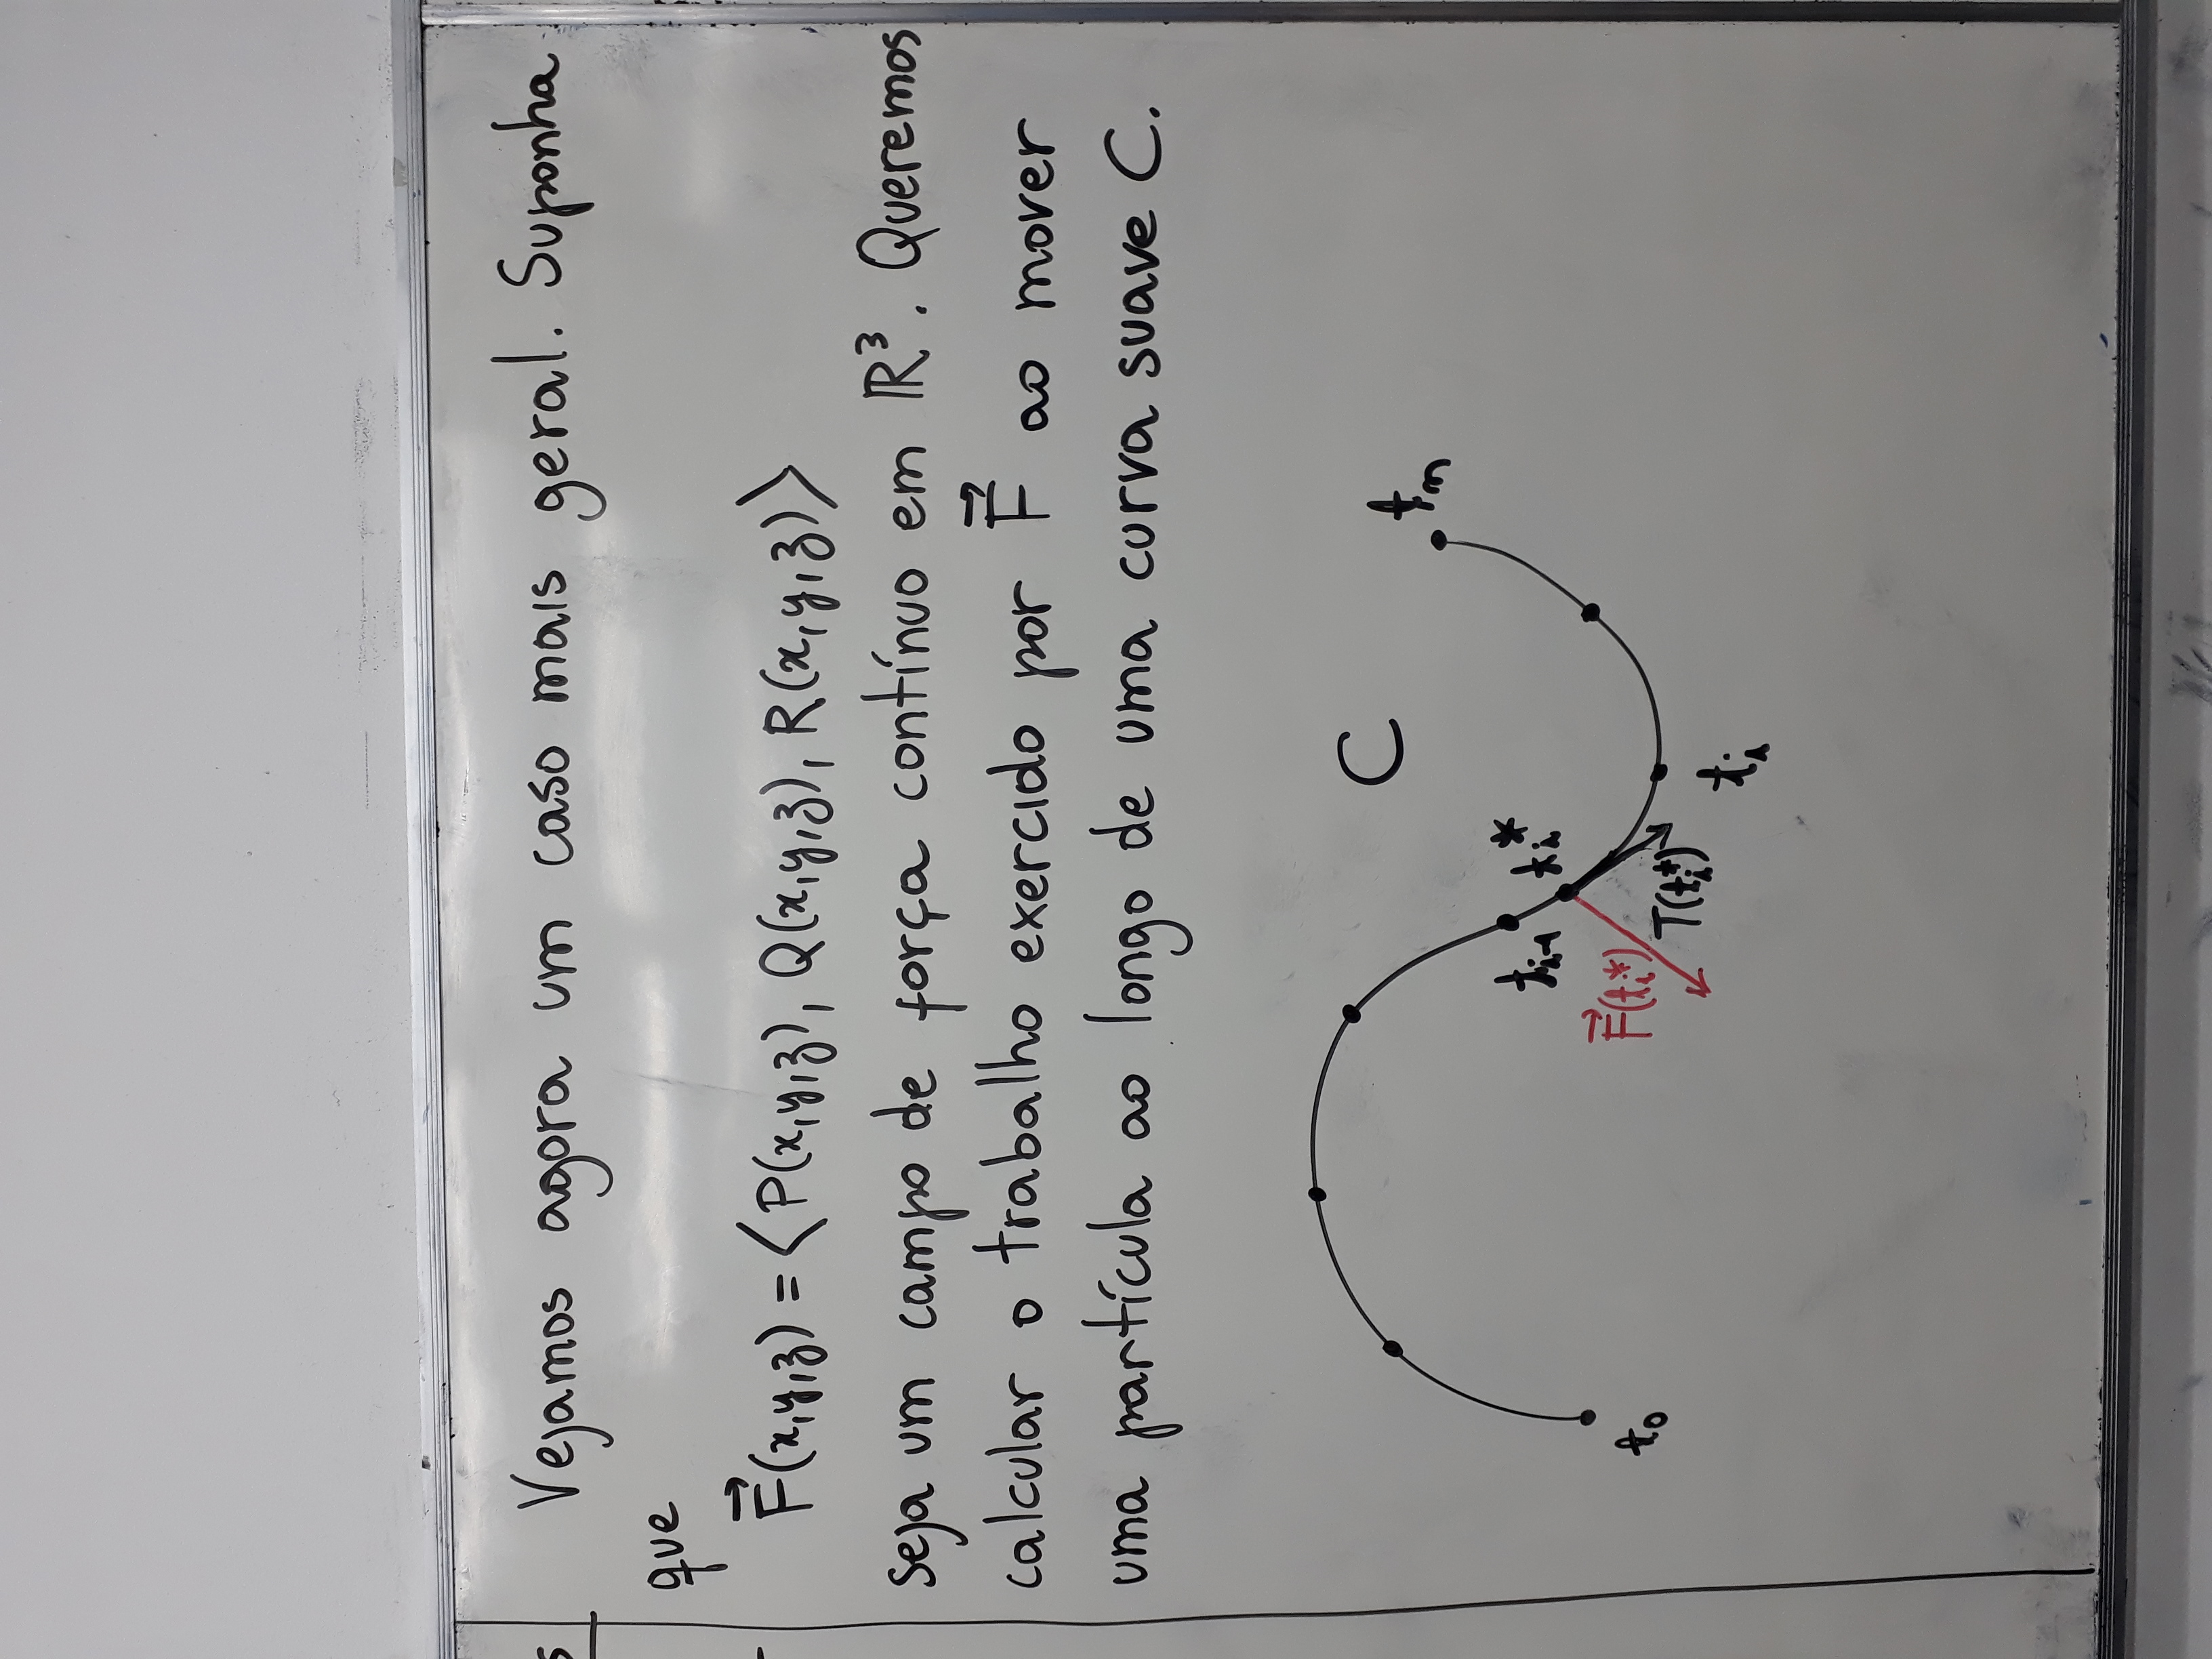 s
Vejamos agora um caso mais geral. Suponha
que
F⃗(x,y,z) = ⟨P(x,y,z), Q(x,y,z), R(x,y,z)⟩
seja um campo de força contínuo em ℝ³. Queremos
calcular o trabalho exercido por F⃗ ao mover
uma partícula ao longo de uma curva suave C.
C
tₙ
tᵢ₋₁ tᵢ*
F⃗(tᵢ*)
t₀
T(tᵢ*)
tᵢ